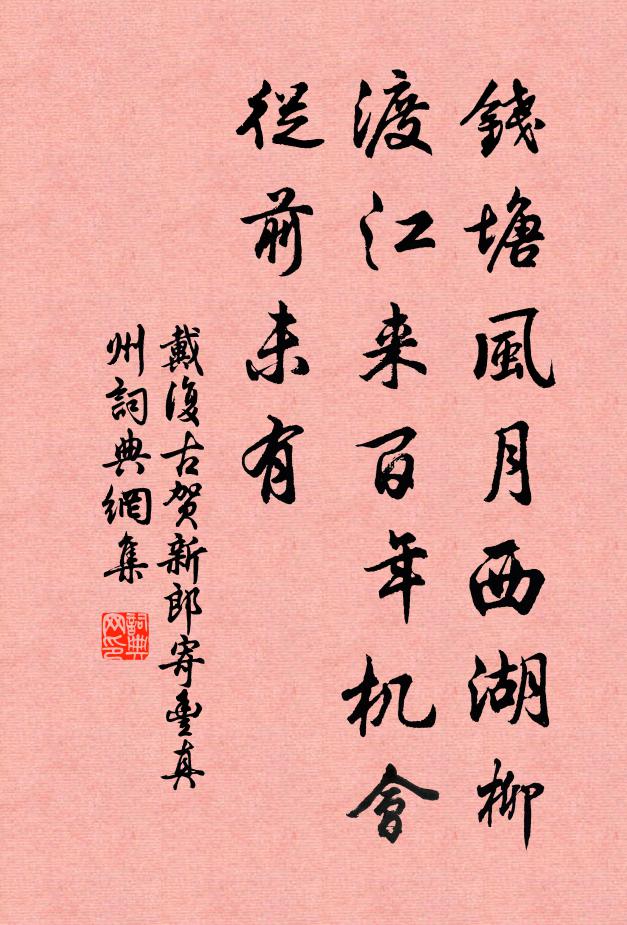 錢塘風月西湖柳
渡江来百年机會
從前未有
戴復古賀新郎寄豊真
州詞典網集
詞典
网印